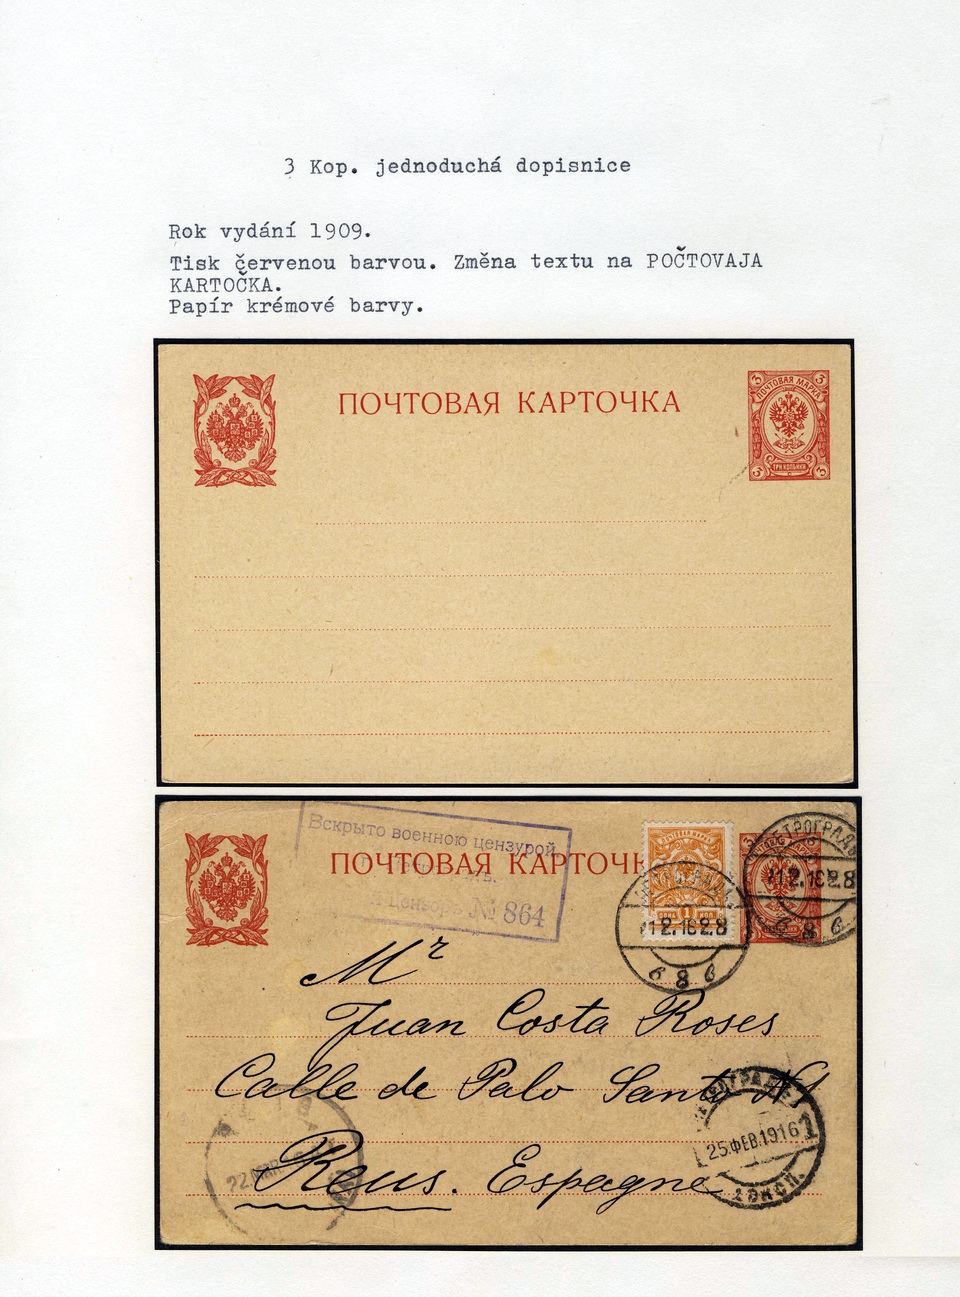 3 Kop. jednoduchá dopisnice
Rok vydání 1909.
Tisk červenou barvou. Změna textu na POČTOVAJA
KARTOČKA.
Papír krémové barvy.
ПОЧТОВАЯ КАРТОЧКА
3 3
ПОЧТОВАЯ МАРКА
ТРИ КОПѢЙКИ
3 3
Вскрыто военною цензурой
ПОЧТОВАЯ КАРТОЧК
Цензоръ № 864
ПОЧТОВАЯ МАРКА
ОДНА 1 КОП.
ПЕТРОГРАДЪ
2.16 2.8
в 8 в
2.16 2.8
8 в
Mr
Juan Costa Roses
Calle de Palo Santo N1
Reus. Espagne
25.ФЕВ.1916
1
22